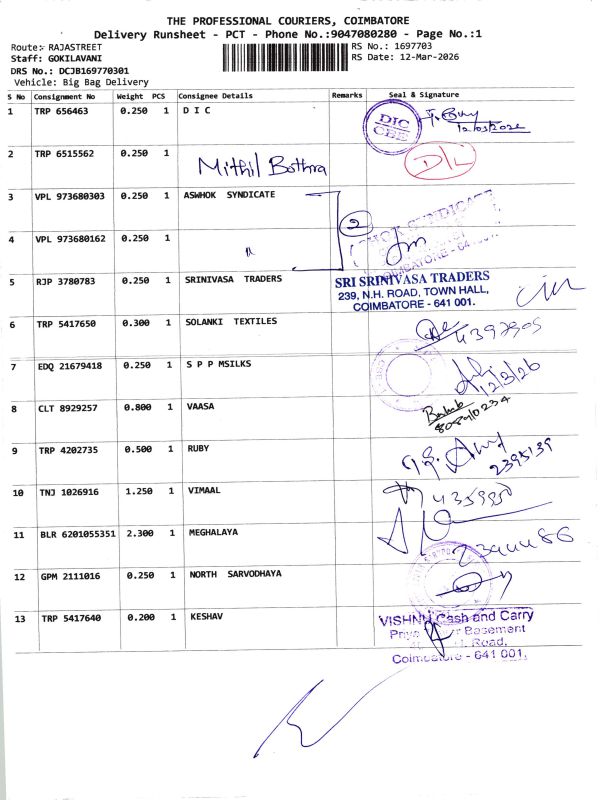 THE PROFESSIONAL COURIERS, COIMBATORE
Delivery Runsheet - PCT - Phone No.:9047080280 - Page No.:1
Route: RAJASTREET
RS No.: 1697703
Staff: GOKILAVANI
RS Date: 12-Mar-2026
DRS No.: DCJB169770301
Vehicle: Big Bag Delivery
S No Consignment No Weight PCS Consignee Details Remarks Seal & Signature
1 TRP 656463 0.250 1 D I C DIC CBE 12/03/2026
2 TRP 6515562 0.250 1 Mithil Bothra D/L
3 VPL 973680303 0.250 1 ASWHOK SYNDICATE
2
4 VPL 973680162 0.250 1 "
5 RJP 3780783 0.250 1 SRINIVASA TRADERS SRI SRINIVASA TRADERS
239, N.H. ROAD, TOWN HALL,
COIMBATORE - 641 001.
6 TRP 5417650 0.300 1 SOLANKI TEXTILES
7 EDQ 21679418 0.250 1 S P P MSILKS 12/3/26
8 CLT 8929257 0.800 1 VAASA
9 TRP 4202735 0.500 1 RUBY 2395139
10 TNJ 1026916 1.250 1 VIMAAL
11 BLR 6201055351 2.300 1 MEGHALAYA
12 GPM 2111016 0.250 1 NORTH SARVODHAYA
13 TRP 5417640 0.200 1 KESHAV VISHNU Cash and Carry
Basement
Road,
Coimbatore - 641 001.